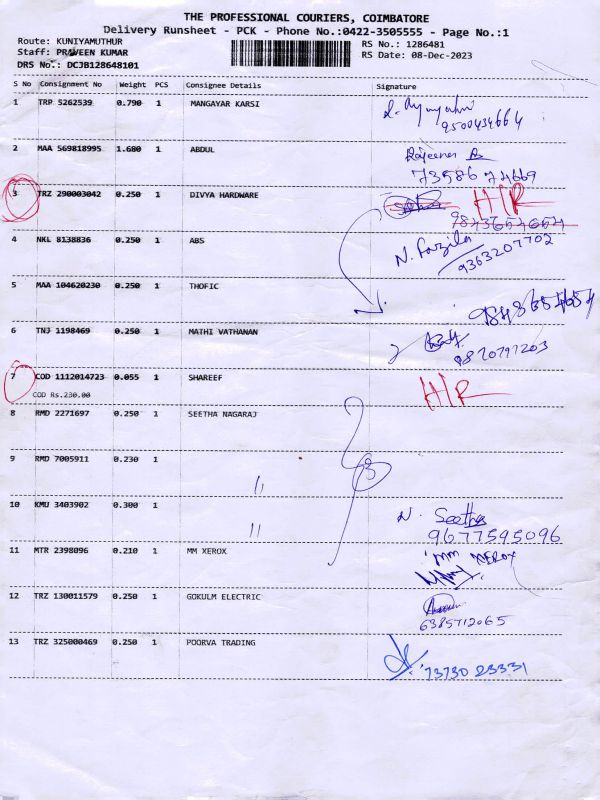 THE PROFESSIONAL COURIERS, COIMBATORE
Delivery Runsheet - PCK - Phone No.:0422-3505555 - Page No.:1
Route: KUNIYAMUTHUR RS No.: 1286481
Staff: PRAVEEN KUMAR RS Date: 08-Dec-2023
DRS No.: DCJB128648101
S No Consignment No Weight PCS Consignee Details Signature
1 TRP 5262539 0.790 1 MANGAYAR KARSI
9500434664
2 MAA 569818995 1.680 1 ABDUL
73586 74669
3 TRZ 290003042 0.250 1 DIVYA HARDWARE H/R
9843654654
4 NKL 8138836 0.250 1 ABS N. Fazila
9363207702
5 MAA 104620230 0.250 1 THOFIC
9843654654
6 TNJ 1198469 0.250 1 MATHI VATHANAN
9870797203
7 COD 1112014723 0.055 1 SHAREEF H/R
COD Rs.230.00
8 RMD 2271697 0.250 1 SEETHA NAGARAJ
9 RMD 7005911 0.230 1
"
10 KMU 3403902 0.300 1 N. Seetha
" 9677595096
11 MTR 2398096 0.210 1 MM XEROX MM XEROX
12 TRZ 130011579 0.250 1 GOKULM ELECTRIC
6385712065
13 TRZ 325000469 0.250 1 POORVA TRADING
73730 23331